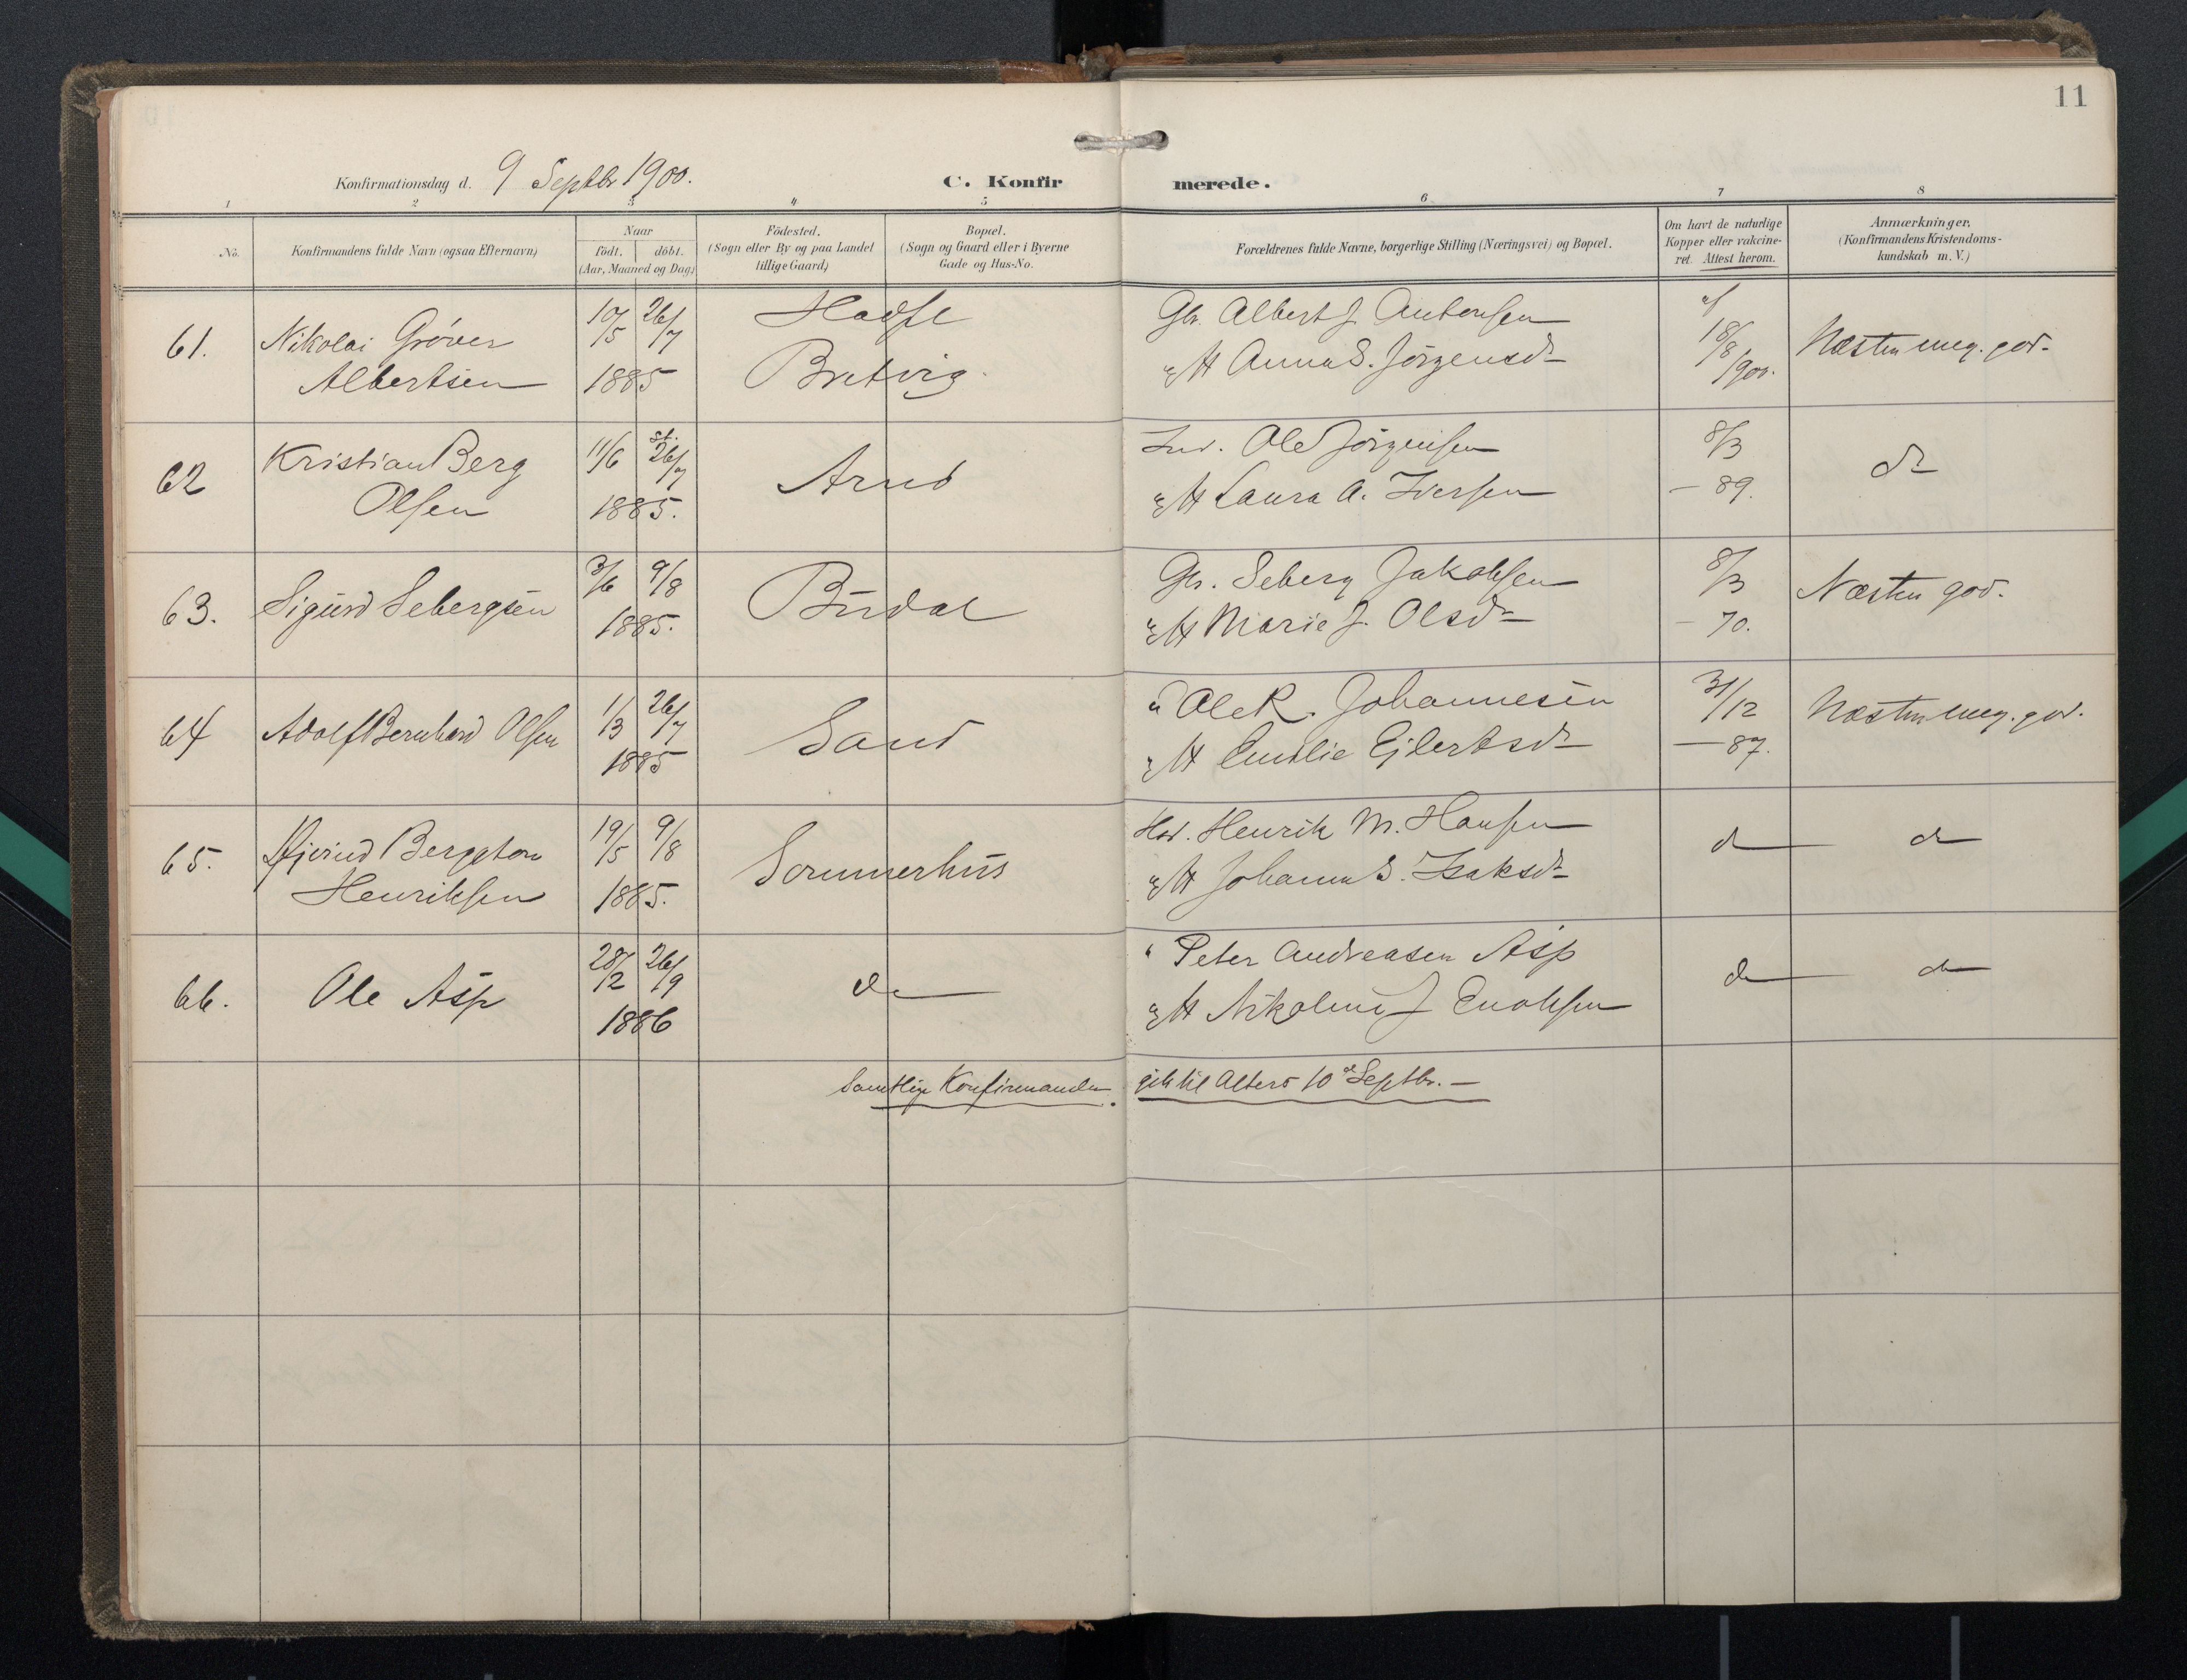 11
Konfirmationsdag d. 9 Septbr 1900.
C. Konfirmerede.
1 2 3 4 5 6 7 8
No.
Konfirmandens fulde Navn (ogsaa Efternavn)
Naar
født. døbt.
(Aar, Maaned og Dag)
Fødested.
(Sogn eller By og paa Landet
tillige Gaard)
Bopæl.
(Sogn og Gaard eller i Byerne
Gade og Hus-No.
Forældrenes fulde Navne, borgerlige Stilling (Næringsvei) og Bopæl.
Om havt de naturlige
Kopper eller vakcine-
ret. Attest herom.
Anmærkninger.
(Konfirmandens Kristendoms-
kundskab m. V.)
61.
Nikolai Grøver
Albertsen
10/5 26/7
1885
Bretvig
Gbr. Albert J. Antonsen
Anna S. Jørgensd
18/8
1900.
Næsten meg. god.
62
Kristian Berg
Olsen
11/6 26/7
1885.
Arnø
Ole Jørgensen
Laura A. Iversen
8/3
- 89.
do
63.
Sigurd Sebergsen
3/6 9/8
1885.
Burdal
Gbr. Seberg Jakobsen
Marie J. Olsd
8/3
- 70.
Næsten god.
64
Adolf Bernhard Olsen
1/3 26/7
1885
Sand
" Ole R. Johannesen
Emilie Ejlertsd
31/12
- 87.
Næsten meg. god.
65.
Berggton
Henriksen
19/5 9/8
1885.
Sommerhus
Henrik M. Hansen
Johanna S. Isaksd
do do
66.
Ole Asp
28/2 26/9
1886
do
" Peter Andreasen Asp
J Enoksen
do do
Samtlige Konfirmander gik til Alters 10de Septbr. -